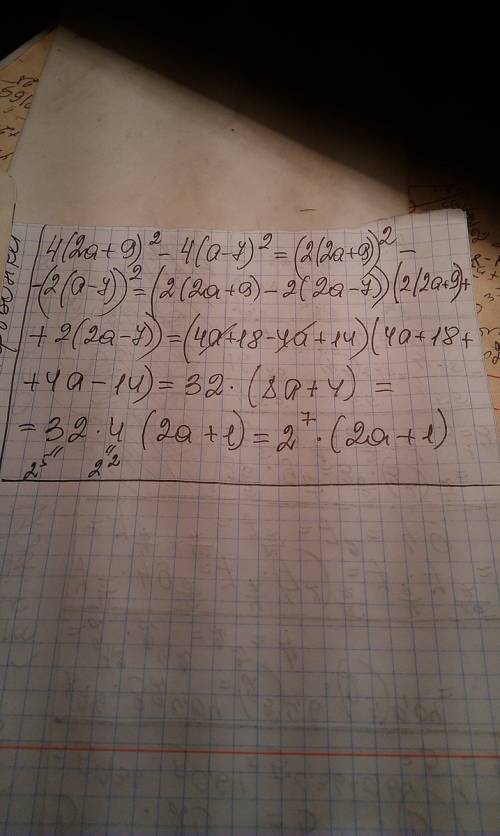 4(2a+9)² - 4(a-7)² = (2(2a+9))² -
-(2(a-7))² = (2(2a+9) - 2(2a-7))(2(2a+9)+
+ 2(2a-7)) = (4a+18-4a+14)(4a+18+
+4a-14) = 32 · (8a+4) =
= 32 · 4 (2a+1) = 2⁷ · (2a+1)
2⁵ 2²